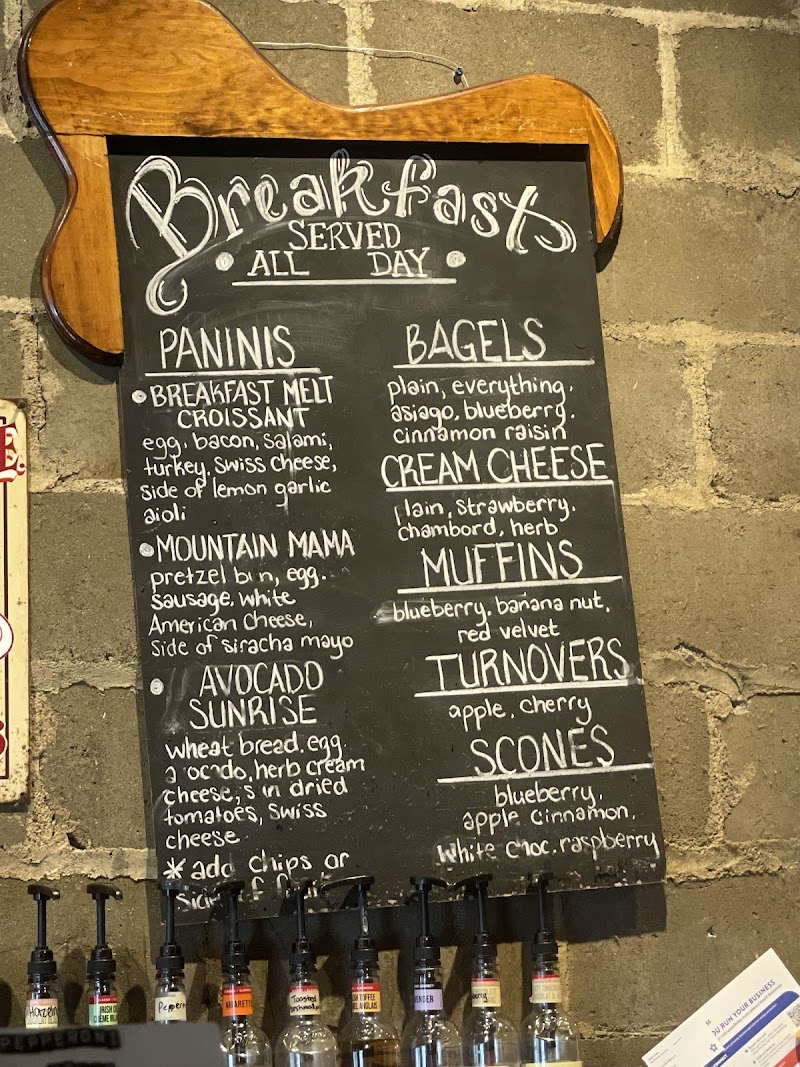 Breakfast
SERVED
• ALL DAY •
PANINIS
• BREAKFAST MELT
CROISSANT
egg, bacon, salami,
turkey, swiss cheese,
side of lemon garlic
aioli
• MOUNTAIN MAMA
pretzel bun, egg,
sausage, white
American cheese,
side of siracha mayo
• AVOCADO
SUNRISE
wheat bread, egg,
avocado, herb cream
cheese, sun dried
tomatoes, swiss
cheese
* add chips or
side of
BAGELS
plain, everything,
asiago, blueberry,
cinnamon raisin
CREAM CHEESE
plain, strawberry,
chambord, herb
MUFFINS
blueberry, banana nut,
red velvet
TURNOVERS
apple, cherry
SCONES
blueberry,
apple cinnamon,
white choc. raspberry
Pepperm
AMARETT
Toasted
ENDER
OU RUN YOUR BUSINESS